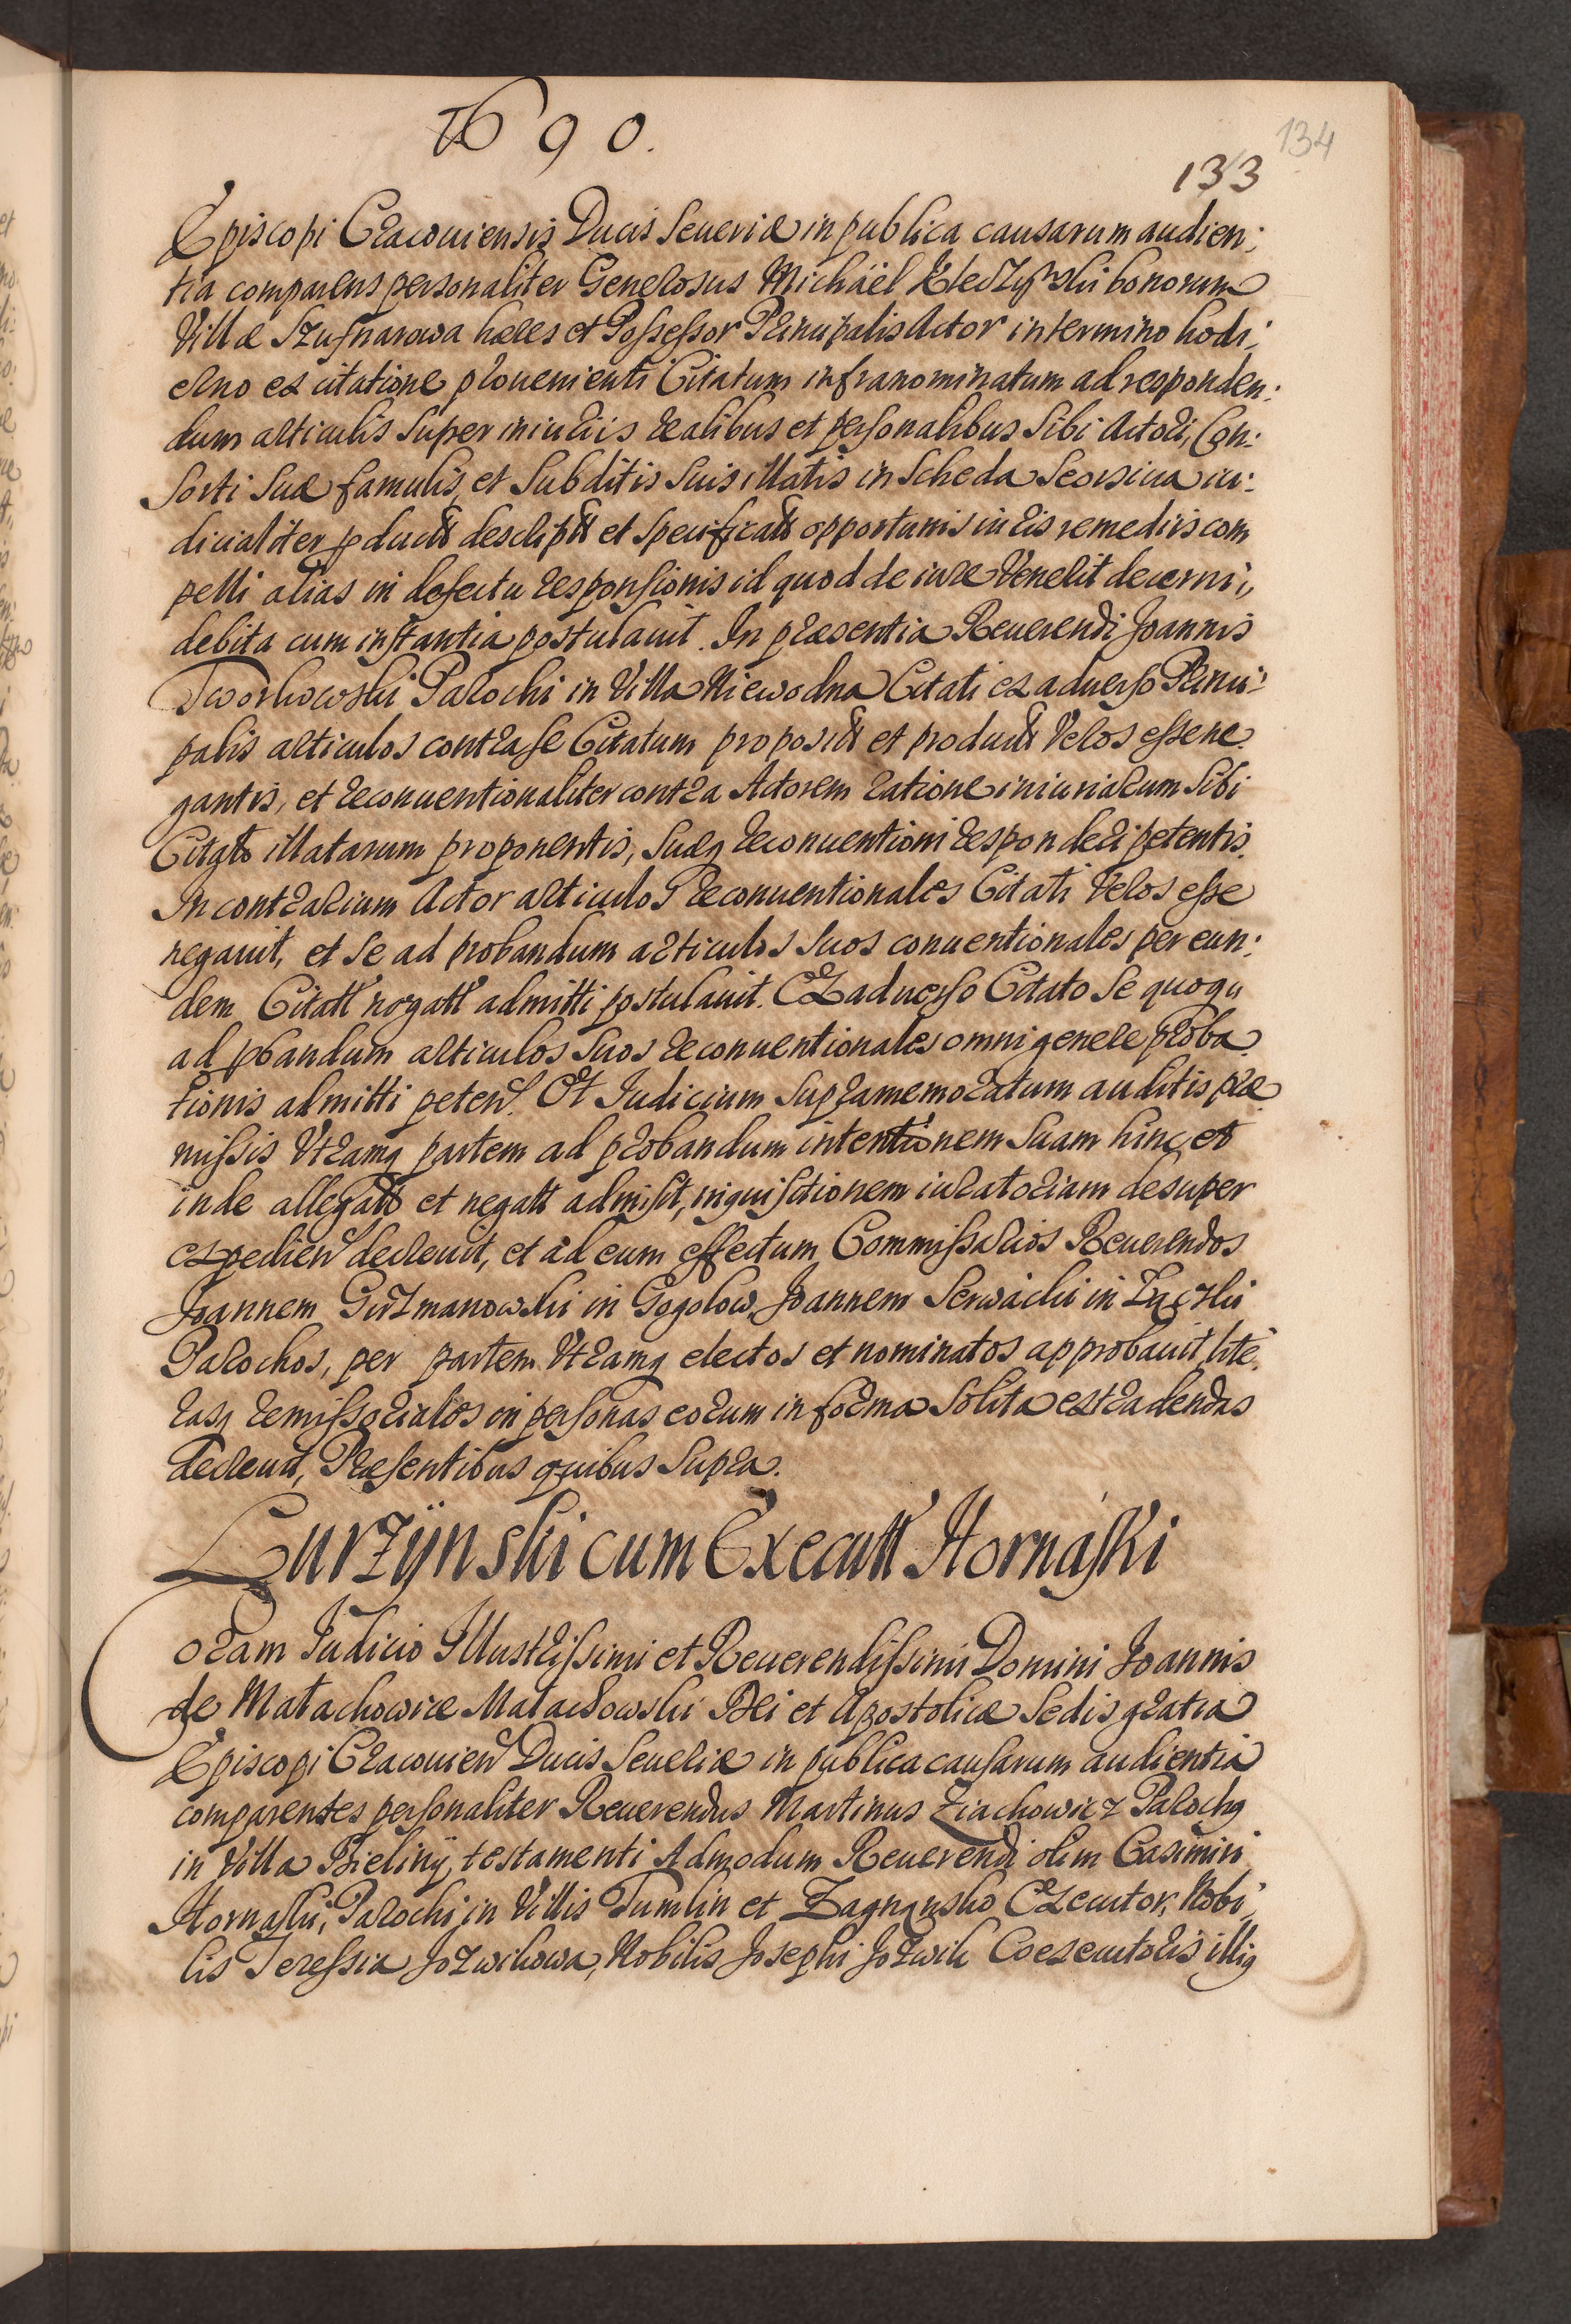 1690.
134
133
Episcopi Cracouiensis Ducis Seueriæ in publica causarum audien:
tia comparens personaliter Generosus Michaël bonorum
Villæ Szufnarowa hæres et Possessor Principalis Actor in termino hodi:
erno ex citatione prouenienti Citatum infranominatum ad responden:
dum articulis super iniuriis realibus et personalibus sibi Actori, Con:
sorti suæ famulis, et Subditis suis illatis in Scheda Seorsiua iu:
dicialiter productt descriptt et specificatt opportunis iuris remediis com
pelli alias in defectu responsionis id quod de iure venerit decerni,
debita cum instantia postulauit. In præsentia Reuerendi Joannis
Tworkowski Parochi in Villa Niewodna Citati ex aduerso Princi:
palis articulos contra se Citatum propositt et productt veros esse ne:
gantis, et reconuentionaliter contra Actorem ratione iniuriarum sibi
Citato illatarum proponentis, suæq reconuentioni responderi petentis.
In contrarium Actor articulos reconuentionales Citati veros esse
negauit, et se ad probandum articulos suos conuentionales per eun:
dem Citatt negatt admitti postulauit. Ex aduerso Citato se quoqu
ad probandum articulos suos reconuentionales omni genere proba:
tionis admitti peten. Et Iudicium supramemoratum auditis præ:
missis Vtramq partem ad probandum intentionem suam hinc et
inde allegatt et negatt admisit, inquisitionem iuratoriam desuper
expedien decreuit, et ad eum effectum Commissarios Reuerendos
Joannem Gutzmanowski in Gogolow, Joannem Serwacki in
Parochos, per partem Vtramq electos et nominatos approbauit, lite:
rasq remissoriales in personas eorum in forma solita extradendas
decreuit, Præsentibus quibus supra.
Curzÿnski cum Executt Hornaski
Coram Iudicio Illustrissimi et Reuerendissimi Domini Joannis
de Małachowice Małachowski Dei et Apostolicæ Sedis gratia
Episcopi Cracouien Ducis Seueriæ in publica causarum audientia
comparentes personaliter Reuerendus Martinus Ziachowicz Parochq
in Villa Bielinÿ, testamenti Admodum Reuerendi olim Casimiri
Hornaski, Parochi in Villis Tumlin et Zagnansko Executor, Nobi:
lis Teressia Jozwikowa, Nobilis Josephi Jozwik Coexecutoris illiq